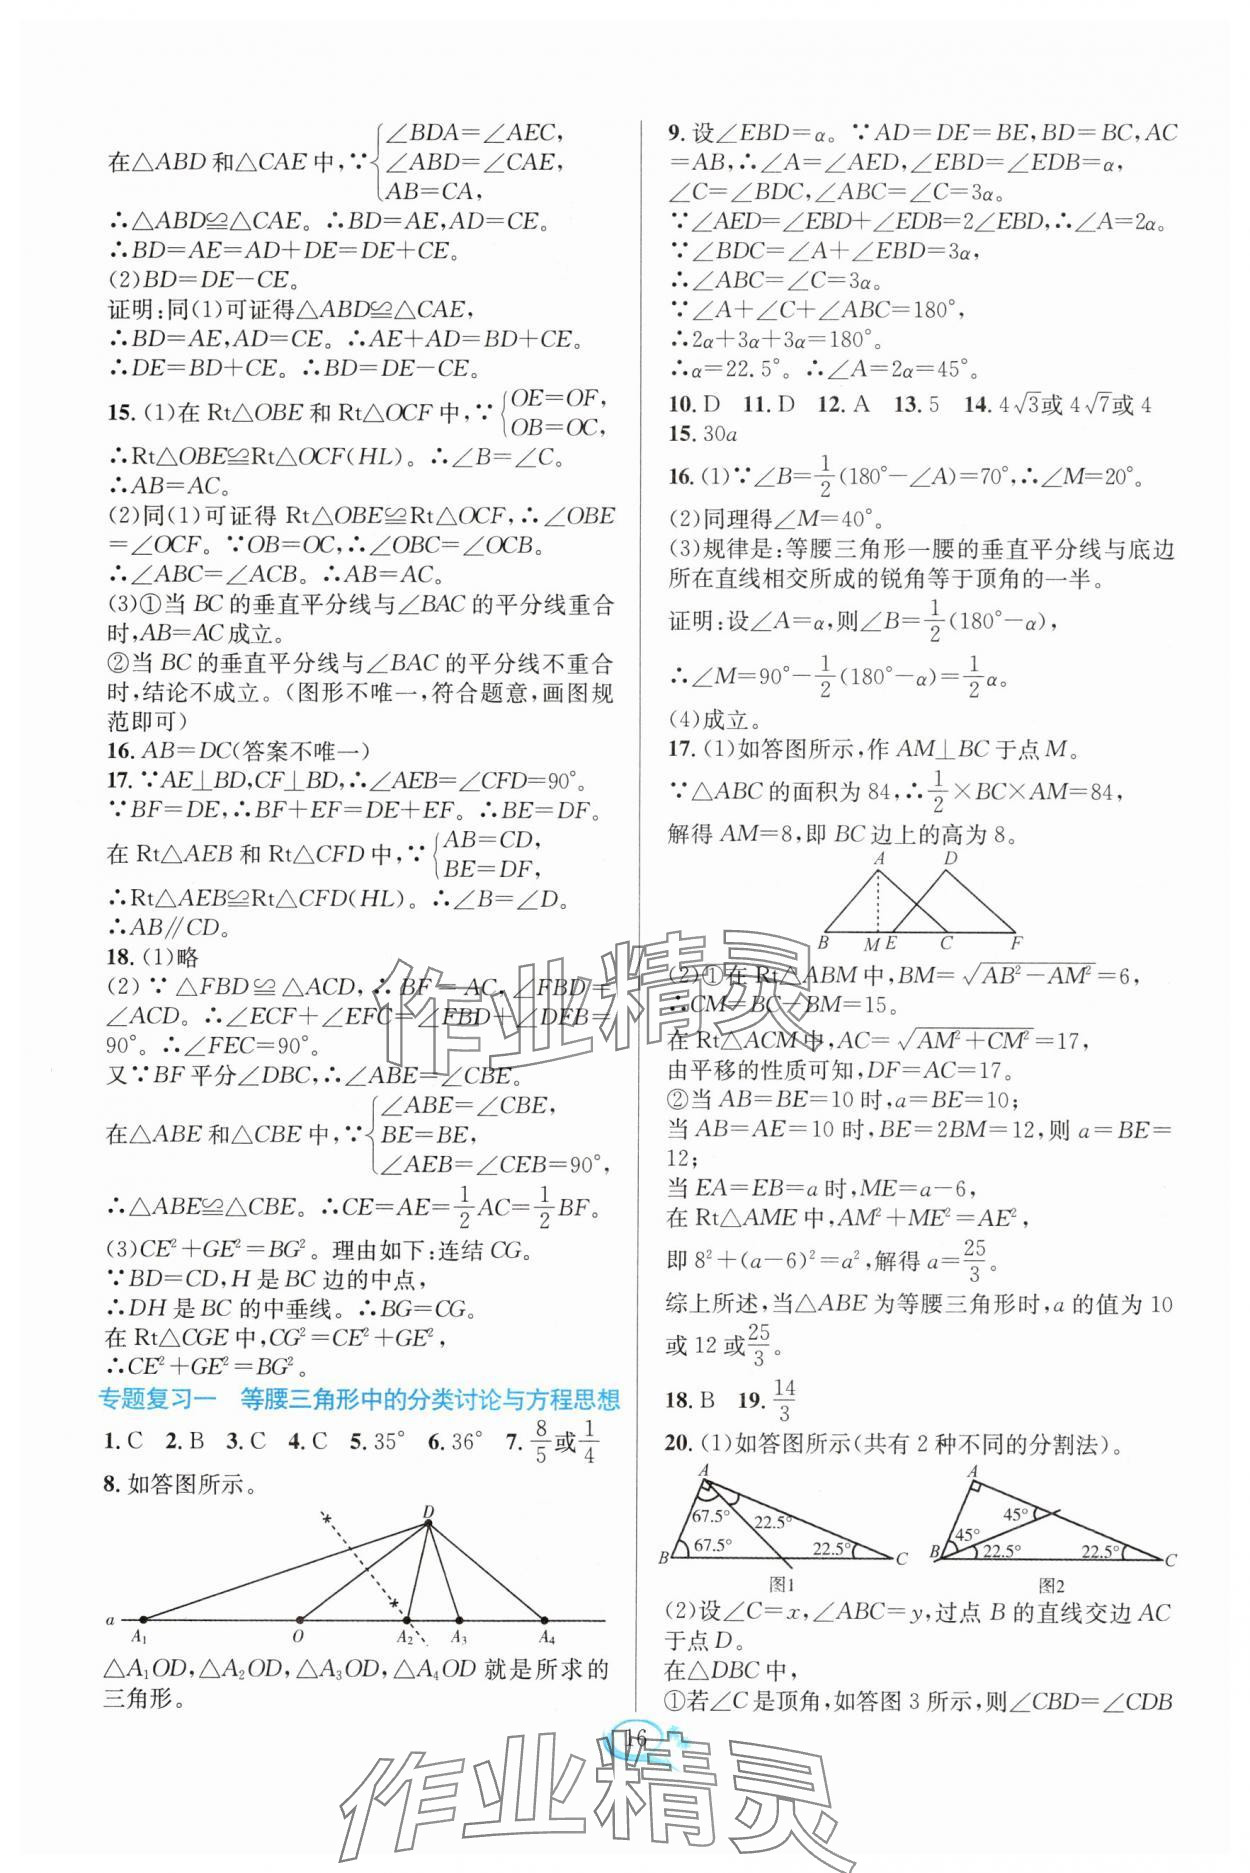 在△ABD 和△CAE 中,∵{∠BDA=∠AEC,
∠ABD=∠CAE,
AB=CA,
∴△ABD≌△CAE。∴BD=AE,AD=CE。
∴BD=AE=AD+DE=DE+CE。
(2)BD=DE−CE。
证明:同(1)可证得△ABD≌△CAE,
∴BD=AE,AD=CE。∴AE+AD=BD+CE。
∴DE=BD+CE。∴BD=DE−CE。
15. (1)在 Rt△OBE 和 Rt△OCF 中,∵{OE=OF,
OB=OC,
∴Rt△OBE≌Rt△OCF(HL)。∴∠B=∠C。
∴AB=AC。
(2)同(1)可证得 Rt△OBE≌Rt△OCF,∴∠OBE
=∠OCF。∵OB=OC,∴∠OBC=∠OCB。
∴∠ABC=∠ACB。∴AB=AC。
(3)①当 BC 的垂直平分线与∠BAC 的平分线重合
时,AB=AC成立。
②当 BC 的垂直平分线与∠BAC 的平分线不重合
时,结论不成立。(图形不唯一,符合题意,画图规
范即可)
16. AB=DC(答案不唯一)
17. ∵AE⊥BD,CF⊥BD,∴∠AEB=∠CFD=90°。
∵BF=DE,∴BF+EF=DE+EF。∴BE=DF。
在 Rt△AEB 和 Rt△CFD 中,∵{AB=CD,
BE=DF,
∴Rt△AEB≌Rt△CFD(HL)。∴∠B=∠D。
∴AB∥CD。
18. (1)略
(2)∵△FBD≌△ACD,∴BF=AC,∠FBD=
∠ACD。∴∠ECF+∠EFC=∠FBD+∠DFB=
90°。∴∠FEC=90°。
又∵BF 平分∠DBC,∴∠ABE=∠CBE。
在△ABE 和△CBE 中,∵{∠ABE=∠CBE,
BE=BE,
∠AEB=∠CEB=90°,
∴△ABE≌△CBE。∴CE=AE=1/2AC=1/2BF。
(3)CE²+GE²=BG²。理由如下:连结 CG。
∵BD=CD,H 是 BC 边的中点,
∴DH 是 BC 的中垂线。∴BG=CG。
在 Rt△CGE 中,CG²=CE²+GE²,
∴CE²+GE²=BG²。
专题复习一 等腰三角形中的分类讨论与方程思想
1. C 2. B 3. C 4. C 5. 35° 6. 36° 7. 8/5或1/4
8. 如答图所示。
D
a A₁ O A₂ A₃ A₄
△A₁OD,△A₂OD,△A₃OD,△A₄OD 就是所求的
三角形。
9. 设∠EBD=α。∵AD=DE=BE,BD=BC,AC
=AB,∴∠A=∠AED,∠EBD=∠EDB=α,
∠C=∠BDC,∠ABC=∠C=3α。
∵∠AED=∠EBD+∠EDB=2∠EBD,∴∠A=2α。
∵∠BDC=∠A+∠EBD=3α,
∴∠ABC=∠C=3α。
∵∠A+∠C+∠ABC=180°,
∴2α+3α+3α=180°。
∴α=22.5°。∴∠A=2α=45°。
10. D 11. D 12. A 13. 5 14. 4√3或 4√7或 4
15. 30a
16. (1)∵∠B=1/2(180°−∠A)=70°,∴∠M=20°。
(2)同理得∠M=40°。
(3)规律是:等腰三角形一腰的垂直平分线与底边
所在直线相交所成的锐角等于顶角的一半。
证明:设∠A=α,则∠B=1/2(180°−α),
∴∠M=90°−1/2(180°−α)=1/2α。
(4)成立。
17. (1)如答图所示,作 AM⊥BC 于点 M。
∵△ABC 的面积为 84,∴1/2×BC×AM=84,
解得 AM=8,即 BC 边上的高为 8。
A D
B M E C F
(2)①在 Rt△ABM 中,BM=√(AB²−AM²)=6,
∴CM=BC−BM=15。
在 Rt△ACM 中,AC=√(AM²+CM²)=17,
由平移的性质可知,DF=AC=17。
②当 AB=BE=10 时,a=BE=10;
当 AB=AE=10 时,BE=2BM=12,则 a=BE=
12;
当 EA=EB=a 时,ME=a−6,
在 Rt△AME 中,AM²+ME²=AE²,
即 8²+(a−6)²=a²,解得 a=25/3。
综上所述,当△ABE 为等腰三角形时,a 的值为 10
或 12 或25/3。
18. B 19. 14/3
20. (1)如答图所示(共有 2 种不同的分割法)。
A 67.5° 22.5° B 67.5° 22.5° C
图1
A 45° B 45° 22.5° 22.5° C
图2
(2)设∠C=x,∠ABC=y,过点 B 的直线交边 AC
于点 D。
在△DBC 中,
①若∠C 是顶角,如答图 3 所示,则∠CBD=∠CDB
16
作业精灵
作业精灵